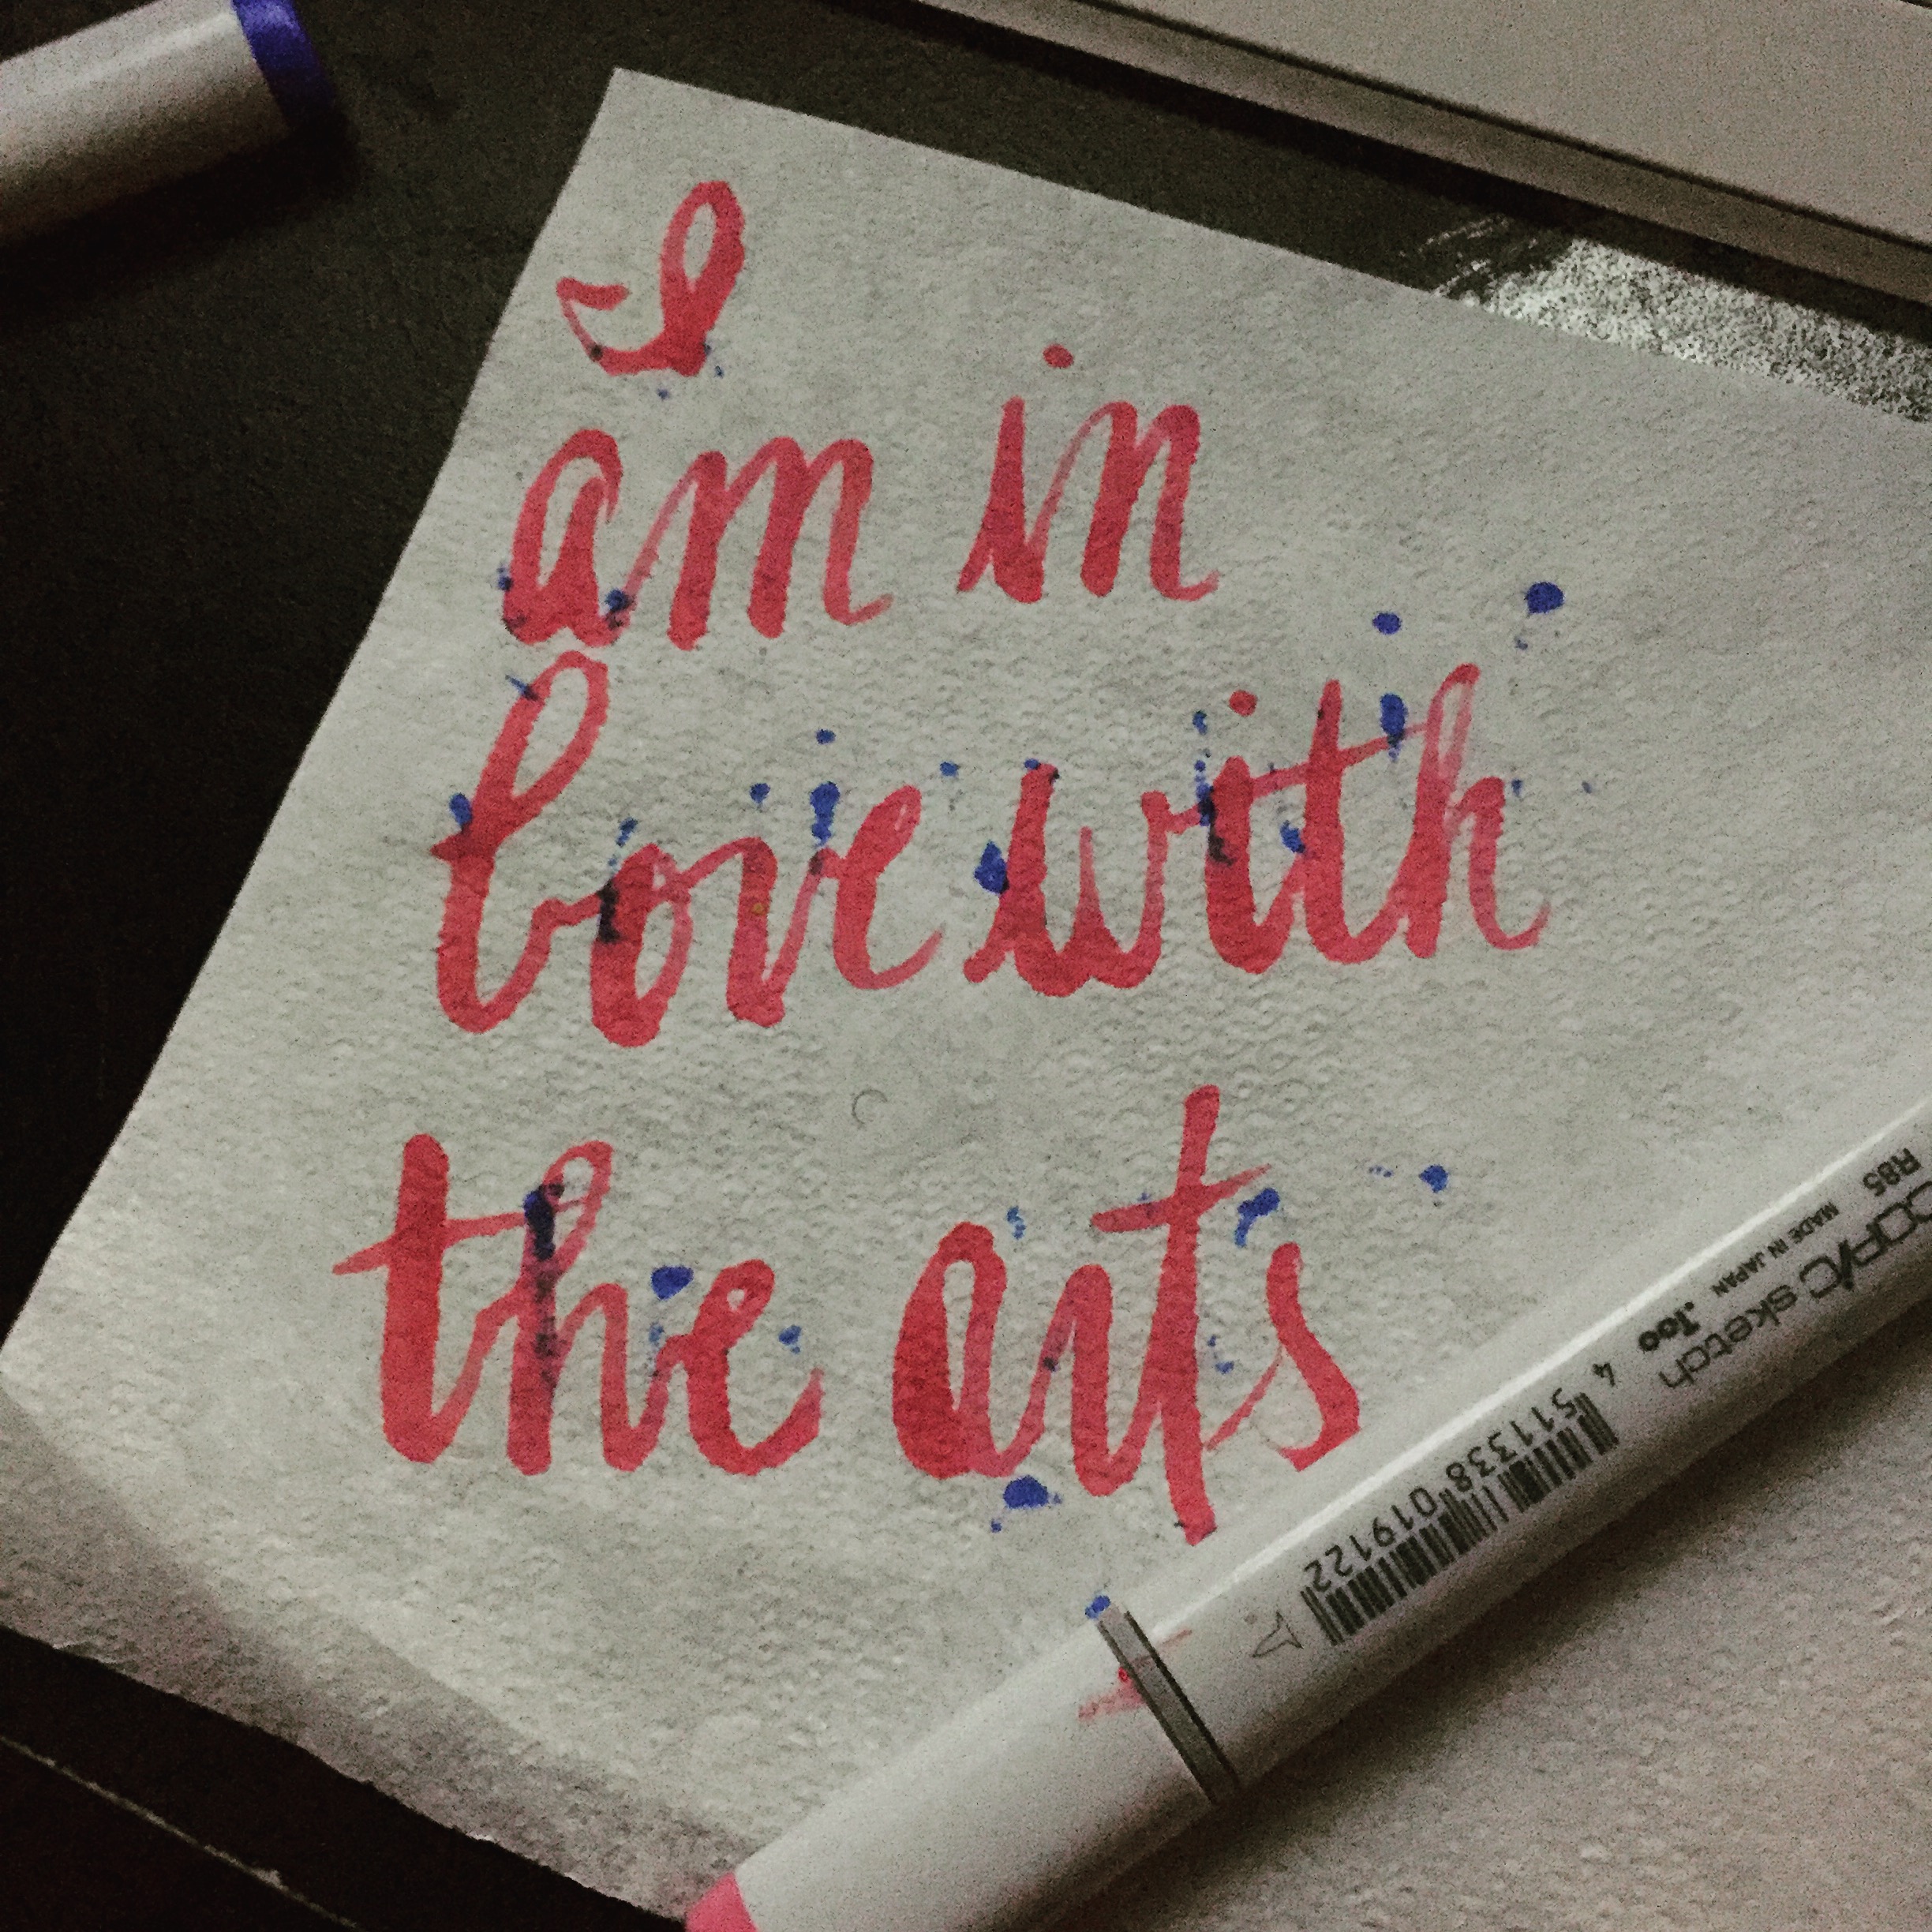 I
am in
love with
the arts
R85
COPIC sketch
MADE IN JAPAN .Too
4 511338 019122